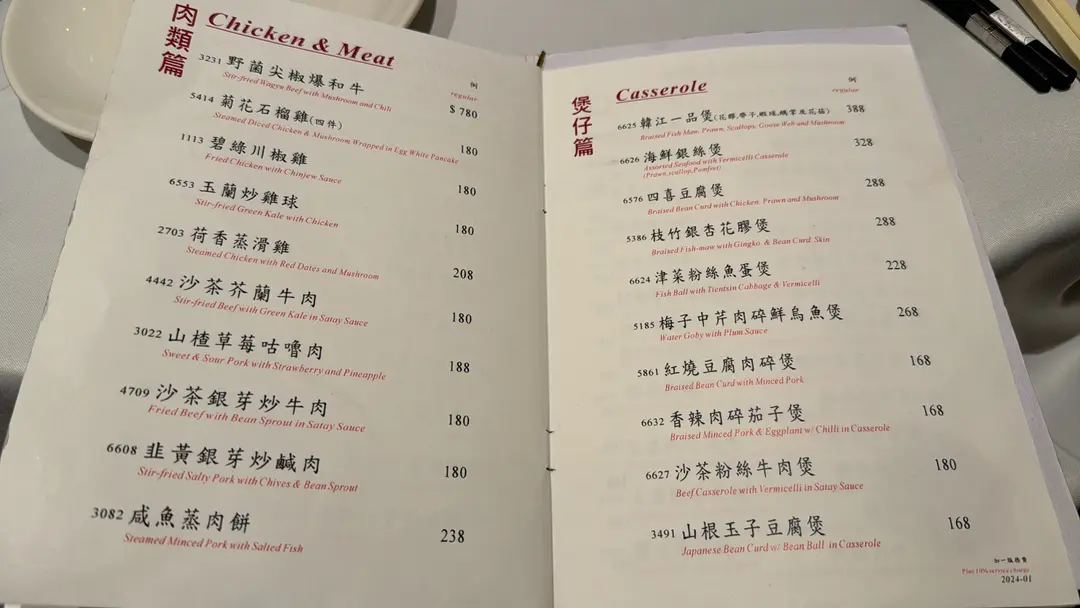 肉類篇
Chicken & Meat
例
regular
3231 野菌尖椒爆和牛 $ 780
Stir-fried Wagyu Beef with Mushroom and Chili
5414 菊花石榴雞(四件) 180
Steamed Diced Chicken & Mushroom Wrapped in Egg White Pancake
1113 碧綠川椒雞 180
Fried Chicken with Chinjew Sauce
6553 玉蘭炒雞球 180
Stir-fried Green Kale with Chicken
2703 荷香蒸滑雞 208
Steamed Chicken with Red Dates and Mushroom
4442 沙茶芥蘭牛肉 180
Stir-fried Beef with Green Kale in Satay Sauce
3022 山楂草莓咕嚕肉 188
Sweet & Sour Pork with Strawberry and Pineapple
4709 沙茶銀芽炒牛肉 180
Fried Beef with Bean Sprout in Satay Sauce
6608 韭黃銀芽炒鹹肉 180
Stir-fried Salty Pork with Chives & Bean Sprout
3082 咸魚蒸肉餅 238
Steamed Minced Pork with Salted Fish
煲仔篇
Casserole
例
regular
6625 韓江一品煲(花膠,帶子,蝦球,鵝掌及花菇) 388
Braised Fish Maw, Prawn, Scallops, Goose Web and Mushroom
6626 海鮮銀絲煲 328
Assorted Seafood with Vermicelli Casserole
(Prawn,scallop,Pomfret)
6576 四喜豆腐煲 288
Braised Bean Curd with Chicken, Prawn and Mushroom
5386 枝竹銀杏花膠煲 288
Braised Fish-maw with Gingko & Bean Curd Skin
6624 津菜粉絲魚蛋煲 228
Fish Ball with Tientsin Cabbage & Vermicelli
5185 梅子中芹肉碎鮮烏魚煲 268
Water Goby with Plum Sauce
5861 紅燒豆腐肉碎煲 168
Braised Bean Curd with Minced Pork
6632 香辣肉碎茄子煲 168
Braised Minced Pork & Eggplant w/ Chilli in Casserole
6627 沙茶粉絲牛肉煲 180
Beef Casserole with Vermicelli in Satay Sauce
3491 山根玉子豆腐煲 168
Japanese Bean Curd w/ Bean Ball in Casserole
加一服務費
Plus 10% service charge
2024-01